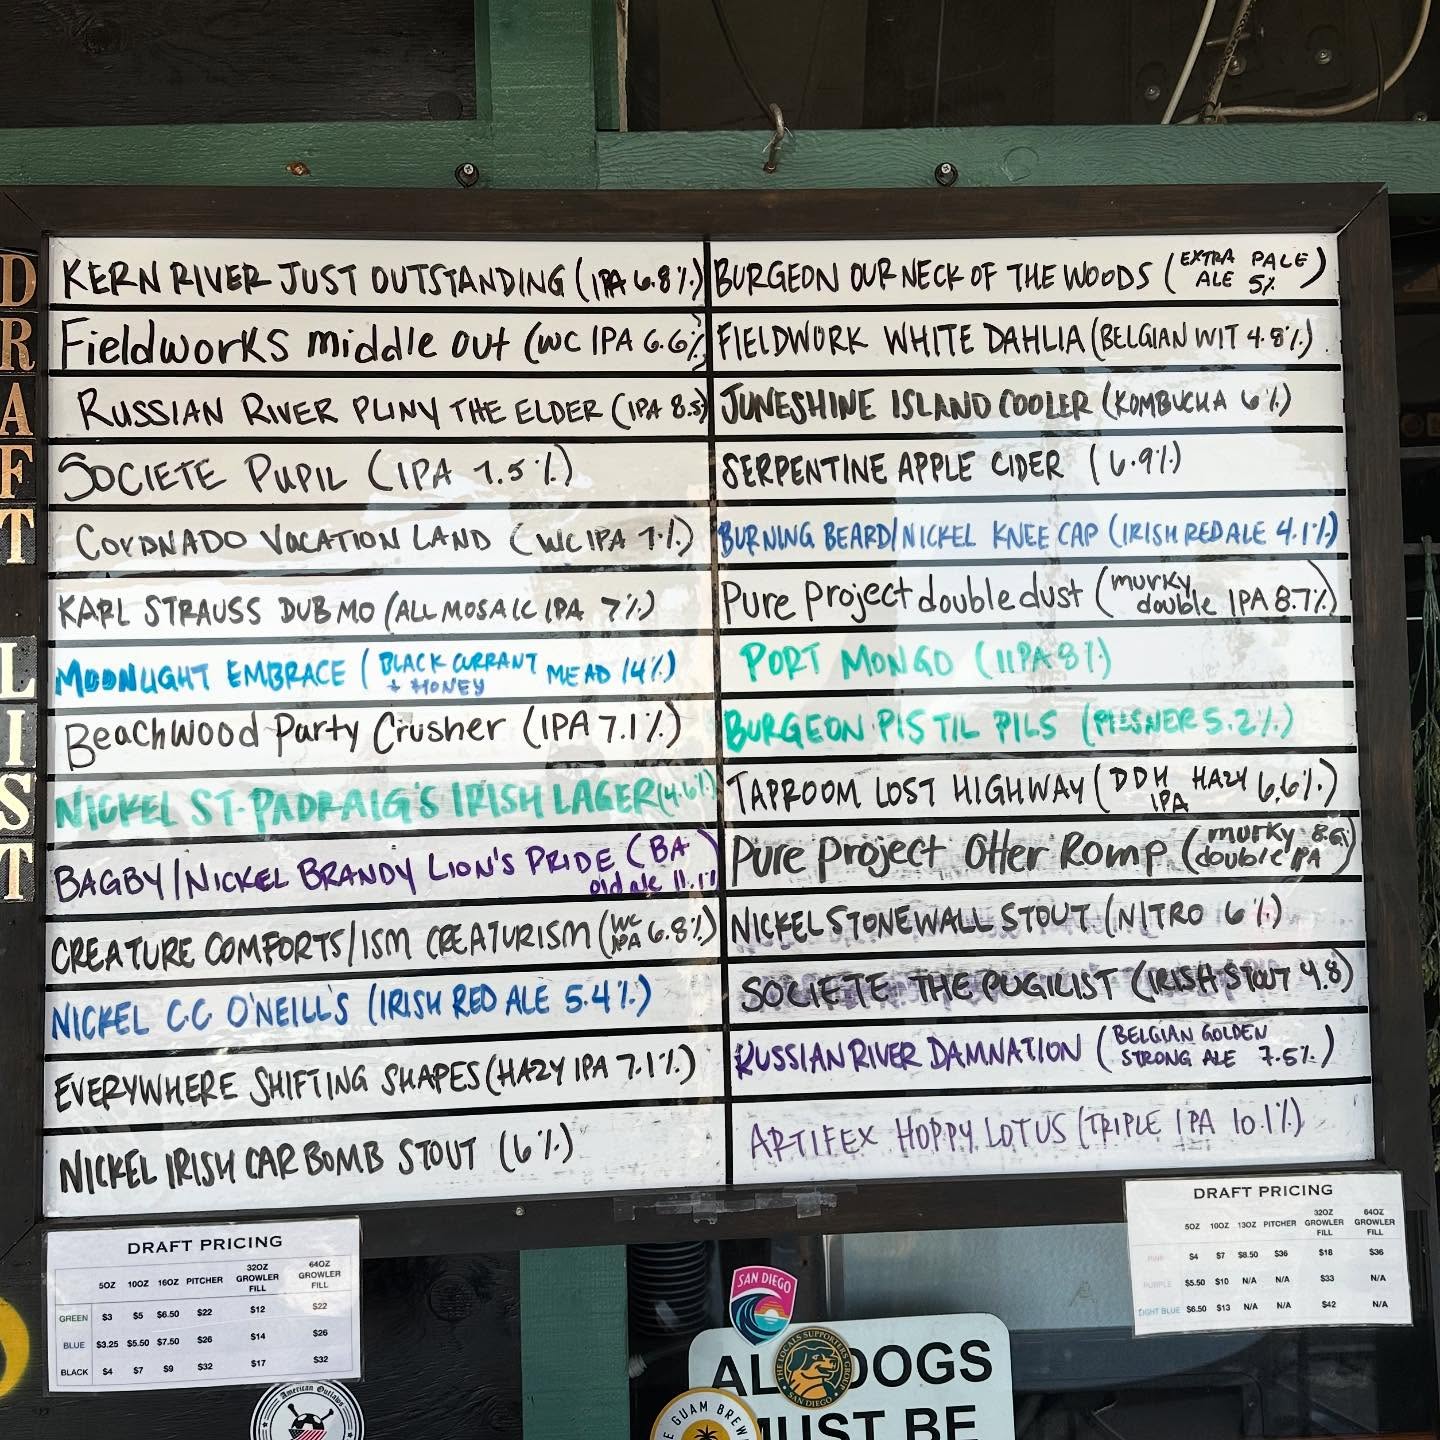 DRAFT LIST
KERN RIVER JUST OUTSTANDING (IPA 6.8%)
Fieldworks middle out (WC IPA 6.6%)
RUSSIAN RIVER PLINY THE ELDER (IPA 8.5)
SOCIETE PUPIL (IPA 7.5%)
CORONADO VACATION LAND (WC IPA 7%)
KARL STRAUSS DUB MO (ALL MOSAIC IPA 7%)
MOONLIGHT EMBRACE (BLACK CURRANT + HONEY MEAD 14%)
Beachwood Party Crusher (IPA 7.1%)
NICKEL ST. PADRAIG'S IRISH LAGER (4.6%)
BAGBY/NICKEL BRANDY LION'S PRIDE (BA old ale 11.1%
CREATURE COMFORTS/ISM CREATURISM (WC IPA 6.8%)
NICKEL CC O'NEILL'S (IRISH RED ALE 5.4%)
EVERYWHERE SHIFTING SHAPES (HAZY IPA 7.1%)
NICKEL IRISH CAR BOMB STOUT (6%)
BURGEON OUR NECK OF THE WOODS (EXTRA PALE ALE 5%)
FIELDWORK WHITE DAHLIA (BELGIAN WIT 4.8%)
JUNESHINE ISLAND COOLER (KOMBUCHA 6%)
SERPENTINE APPLE CIDER (6.9%)
BURNING BEARD/NICKEL KNEE CAP (IRISH RED ALE 4.1%)
Pure Project double dust (murky double IPA 8.7%)
PORT MONGO (IIPA 8%)
BURGEON PISTIL PILS (PILSNER 5.2%)
TAPROOM LOST HIGHWAY (DDH HAZY IPA 6.6%)
Pure Project Otter Romp (murky double IPA 8.6)
NICKEL STONEWALL STOUT (NITRO 6%)
SOCIETE THE PUGILIST (IRISH STOUT 4.8)
RUSSIAN RIVER DAMNATION (BELGIAN GOLDEN STRONG ALE 7.5%)
ARTIFEX HOPPY LOTUS (TRIPLE IPA 10.1%)
DRAFT PRICING
5OZ 10OZ 16OZ PITCHER 32OZ GROWLER FILL 64OZ GROWLER FILL
GREEN $3 $5 $6.50 $22 $12 $22
BLUE $3.25 $5.50 $7.50 $26 $14 $26
BLACK $4 $7 $9 $32 $17 $32
DRAFT PRICING
5OZ 10OZ 13OZ PITCHER 32OZ GROWLER FILL 64OZ GROWLER FILL
PINK $4 $7 $8.50 $36 $18 $36
PURPLE $5.50 $10 N/A N/A $33 N/A
LIGHT BLUE $6.50 $13 N/A N/A $42 N/A
SAN DIEGO
THE LOCALS SUPPORTERS GROUP
SAN DIEGO
ALL DOGS
MUST BE
GUAM BREW
American Outlaws